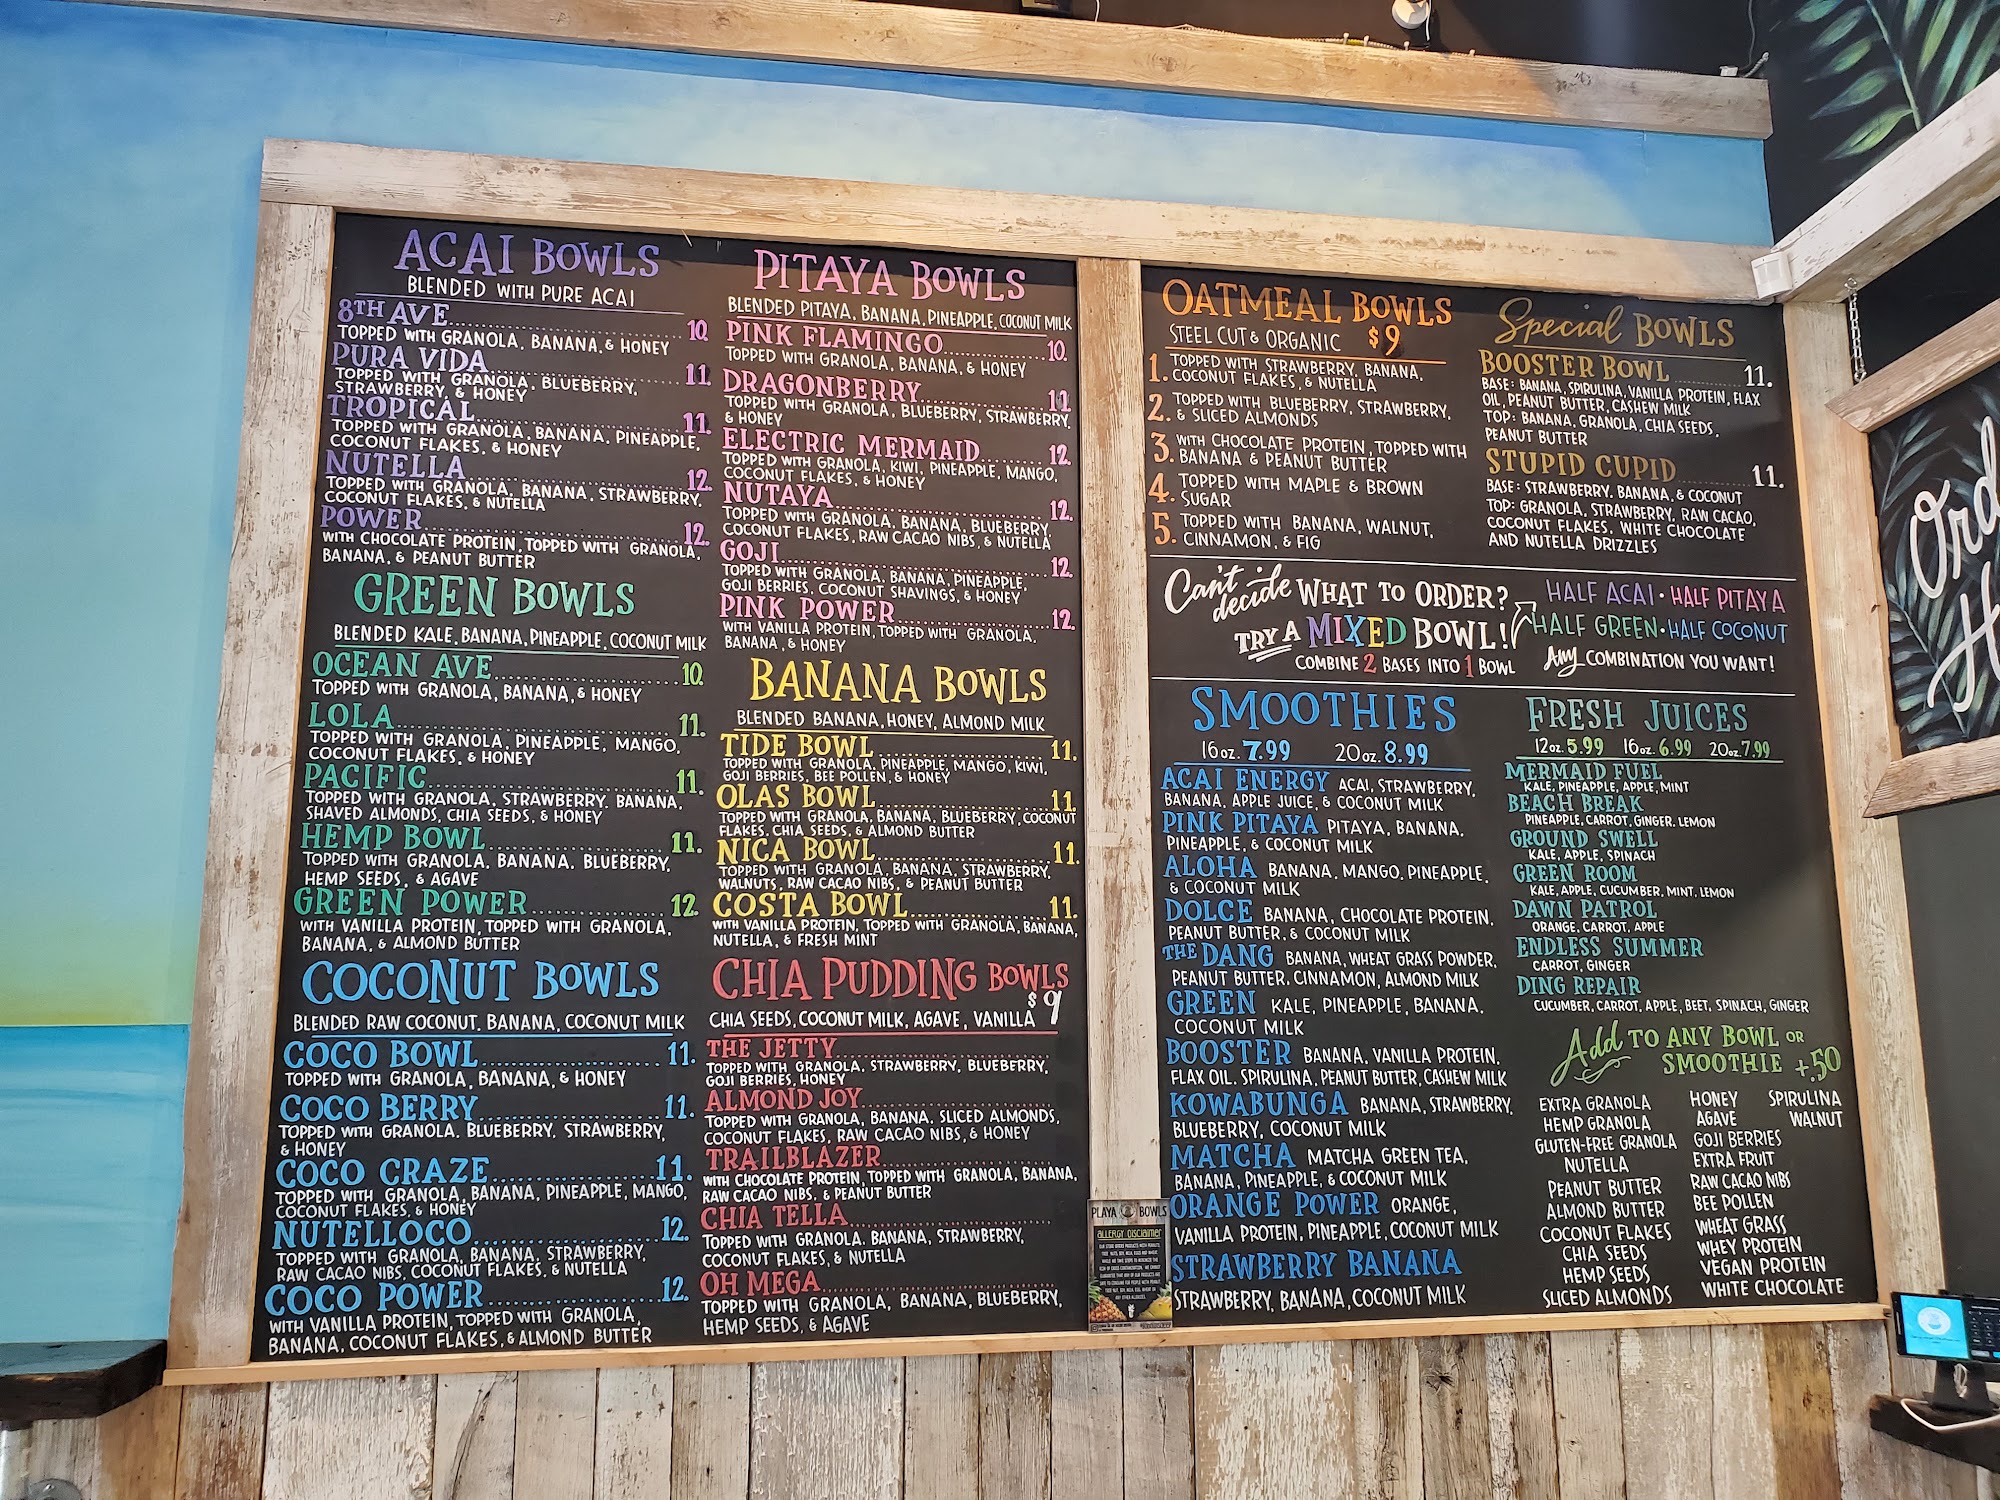 ACAI BOWLS
BLENDED WITH PURE ACAI
8TH AVE 10.
TOPPED WITH GRANOLA, BANANA, & HONEY
PURA VIDA 11.
TOPPED WITH GRANOLA, BLUEBERRY,
STRAWBERRY, & HONEY
TROPICAL 11.
TOPPED WITH GRANOLA, BANANA, PINEAPPLE,
COCONUT FLAKES, & HONEY
NUTELLA 12.
TOPPED WITH GRANOLA, BANANA, STRAWBERRY,
COCONUT FLAKES, & NUTELLA
POWER 12.
WITH CHOCOLATE PROTEIN, TOPPED WITH GRANOLA,
BANANA, & PEANUT BUTTER
GREEN BOWLS
BLENDED KALE, BANANA, PINEAPPLE, COCONUT MILK
OCEAN AVE 10.
TOPPED WITH GRANOLA, BANANA, & HONEY
LOLA 11.
TOPPED WITH GRANOLA, PINEAPPLE, MANGO,
COCONUT FLAKES, & HONEY
PACIFIC 11.
TOPPED WITH GRANOLA, STRAWBERRY, BANANA,
SHAVED ALMONDS, CHIA SEEDS, & HONEY
HEMP BOWL 11.
TOPPED WITH GRANOLA, BANANA, BLUEBERRY,
HEMP SEEDS, & AGAVE
GREEN POWER 12.
WITH VANILLA PROTEIN, TOPPED WITH GRANOLA,
BANANA, & ALMOND BUTTER
COCONUT BOWLS
BLENDED RAW COCONUT, BANANA, COCONUT MILK
COCO BOWL 11.
TOPPED WITH GRANOLA, BANANA, & HONEY
COCO BERRY 11.
TOPPED WITH GRANOLA, BLUEBERRY, STRAWBERRY,
& HONEY
COCO CRAZE 11.
TOPPED WITH GRANOLA, BANANA, PINEAPPLE, MANGO,
COCONUT FLAKES, & HONEY
NUTELLOCO 12.
TOPPED WITH GRANOLA, BANANA, STRAWBERRY,
RAW CACAO NIBS, COCONUT FLAKES, & NUTELLA
COCO POWER 12.
WITH VANILLA PROTEIN, TOPPED WITH GRANOLA,
BANANA, COCONUT FLAKES, & ALMOND BUTTER
PITAYA BOWLS
BLENDED PITAYA, BANANA, PINEAPPLE, COCONUT MILK
PINK FLAMINGO 10.
TOPPED WITH GRANOLA, BANANA, & HONEY
DRAGONBERRY 11.
TOPPED WITH GRANOLA, BLUEBERRY, STRAWBERRY,
& HONEY
ELECTRIC MERMAID 12.
TOPPED WITH GRANOLA, KIWI, PINEAPPLE, MANGO,
COCONUT FLAKES, & HONEY
NUTAYA 12.
TOPPED WITH GRANOLA, BANANA, BLUEBERRY,
COCONUT FLAKES, RAW CACAO NIBS, & NUTELLA
GOJI 12.
TOPPED WITH GRANOLA, BANANA, PINEAPPLE,
GOJI BERRIES, COCONUT SHAVINGS, & HONEY
PINK POWER 12.
WITH VANILLA PROTEIN, TOPPED WITH GRANOLA,
BANANA, & HONEY
BANANA BOWLS
BLENDED BANANA, HONEY, ALMOND MILK
TIDE BOWL 11.
TOPPED WITH GRANOLA, PINEAPPLE, MANGO, KIWI,
GOJI BERRIES, BEE POLLEN, & HONEY
OLAS BOWL 11.
TOPPED WITH GRANOLA, BANANA, BLUEBERRY, COCONUT
FLAKES, CHIA SEEDS, & ALMOND BUTTER
NICA BOWL 11.
TOPPED WITH GRANOLA, BANANA, STRAWBERRY,
WALNUTS, RAW CACAO NIBS, & PEANUT BUTTER
COSTA BOWL 11.
WITH VANILLA PROTEIN, TOPPED WITH GRANOLA, BANANA,
NUTELLA, & FRESH MINT
CHIA PUDDING BOWLS
$9
CHIA SEEDS, COCONUT MILK, AGAVE, VANILLA
THE JETTY
TOPPED WITH GRANOLA, STRAWBERRY, BLUEBERRY,
GOJI BERRIES, HONEY
ALMOND JOY
TOPPED WITH GRANOLA, BANANA, SLICED ALMONDS,
COCONUT FLAKES, RAW CACAO NIBS, & HONEY
TRAILBLAZER
WITH CHOCOLATE PROTEIN, TOPPED WITH GRANOLA, BANANA,
RAW CACAO NIBS, & PEANUT BUTTER
CHIA TELLA
TOPPED WITH GRANOLA, BANANA, STRAWBERRY,
COCONUT FLAKES, & NUTELLA
OH MEGA
TOPPED WITH GRANOLA, BANANA, BLUEBERRY,
HEMP SEEDS, & AGAVE
PLAYA BOWLS
ALLERGY DISCLAIMER
OATMEAL BOWLS
STEEL CUT & ORGANIC $9
1. TOPPED WITH STRAWBERRY, BANANA,
COCONUT FLAKES, & NUTELLA
2. TOPPED WITH BLUEBERRY, STRAWBERRY,
& SLICED ALMONDS
3. WITH CHOCOLATE PROTEIN, TOPPED WITH
BANANA & PEANUT BUTTER
4. TOPPED WITH MAPLE & BROWN
SUGAR
5. TOPPED WITH BANANA, WALNUT,
CINNAMON, & FIG
Special BOWLS
BOOSTER BOWL 11.
BASE: BANANA, SPIRULINA, VANILLA PROTEIN, FLAX
OIL, PEANUT BUTTER, CASHEW MILK
TOP: BANANA, GRANOLA, CHIA SEEDS,
PEANUT BUTTER
STUPID CUPID 11.
BASE: STRAWBERRY, BANANA, & COCONUT
TOP: GRANOLA, STRAWBERRY, RAW CACAO,
COCONUT FLAKES, WHITE CHOCOLATE
AND NUTELLA DRIZZLES
Can't decide WHAT TO ORDER?
TRY A MIXED BOWL!
COMBINE 2 BASES INTO 1 BOWL
HALF ACAI • HALF PITAYA
HALF GREEN • HALF COCONUT
Any COMBINATION YOU WANT!
SMOOTHIES
16 oz. 7.99 20 oz. 8.99
ACAI ENERGY ACAI, STRAWBERRY,
BANANA, APPLE JUICE, & COCONUT MILK
PINK PITAYA PITAYA, BANANA,
PINEAPPLE, & COCONUT MILK
ALOHA BANANA, MANGO, PINEAPPLE,
& COCONUT MILK
DOLCE BANANA, CHOCOLATE PROTEIN,
PEANUT BUTTER, & COCONUT MILK
THE DANG BANANA, WHEAT GRASS POWDER,
PEANUT BUTTER, CINNAMON, ALMOND MILK
GREEN KALE, PINEAPPLE, BANANA,
COCONUT MILK
BOOSTER BANANA, VANILLA PROTEIN,
FLAX OIL, SPIRULINA, PEANUT BUTTER, CASHEW MILK
KOWABUNGA BANANA, STRAWBERRY,
BLUEBERRY, COCONUT MILK
MATCHA MATCHA GREEN TEA,
BANANA, PINEAPPLE, & COCONUT MILK
ORANGE POWER ORANGE,
VANILLA PROTEIN, PINEAPPLE, COCONUT MILK
STRAWBERRY BANANA
STRAWBERRY, BANANA, COCONUT MILK
FRESH JUICES
12 oz. 5.99 16 oz. 6.99 20 oz. 7.99
MERMAID FUEL
KALE, PINEAPPLE, APPLE, MINT
BEACH BREAK
PINEAPPLE, CARROT, GINGER, LEMON
GROUND SWELL
KALE, APPLE, SPINACH
GREEN ROOM
KALE, APPLE, CUCUMBER, MINT, LEMON
DAWN PATROL
ORANGE, CARROT, APPLE
ENDLESS SUMMER
CARROT, GINGER
DING REPAIR
CUCUMBER, CARROT, APPLE, BEET, SPINACH, GINGER
Add TO ANY BOWL OR
SMOOTHIE +.50
EXTRA GRANOLA
HEMP GRANOLA
GLUTEN-FREE GRANOLA
NUTELLA
PEANUT BUTTER
ALMOND BUTTER
COCONUT FLAKES
CHIA SEEDS
HEMP SEEDS
SLICED ALMONDS
HONEY
AGAVE
GOJI BERRIES
EXTRA FRUIT
RAW CACAO NIBS
BEE POLLEN
WHEAT GRASS
WHEY PROTEIN
VEGAN PROTEIN
WHITE CHOCOLATE
SPIRULINA
WALNUT